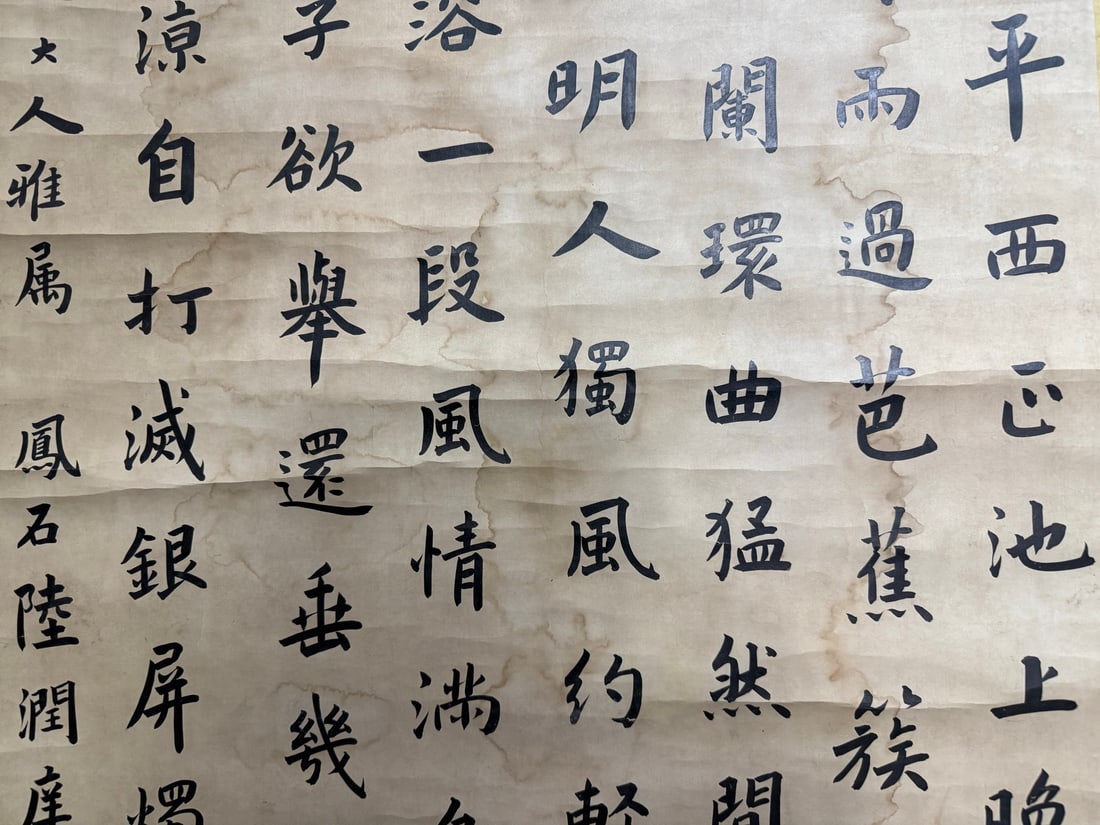 平西正池上晚
雨過芭蕉簇
闌環曲猛然間
明人獨風約
浴一段風情滿
子欲舉還垂幾
涼自打滅銀屏燭
大人雅属 鳳石陸潤庠